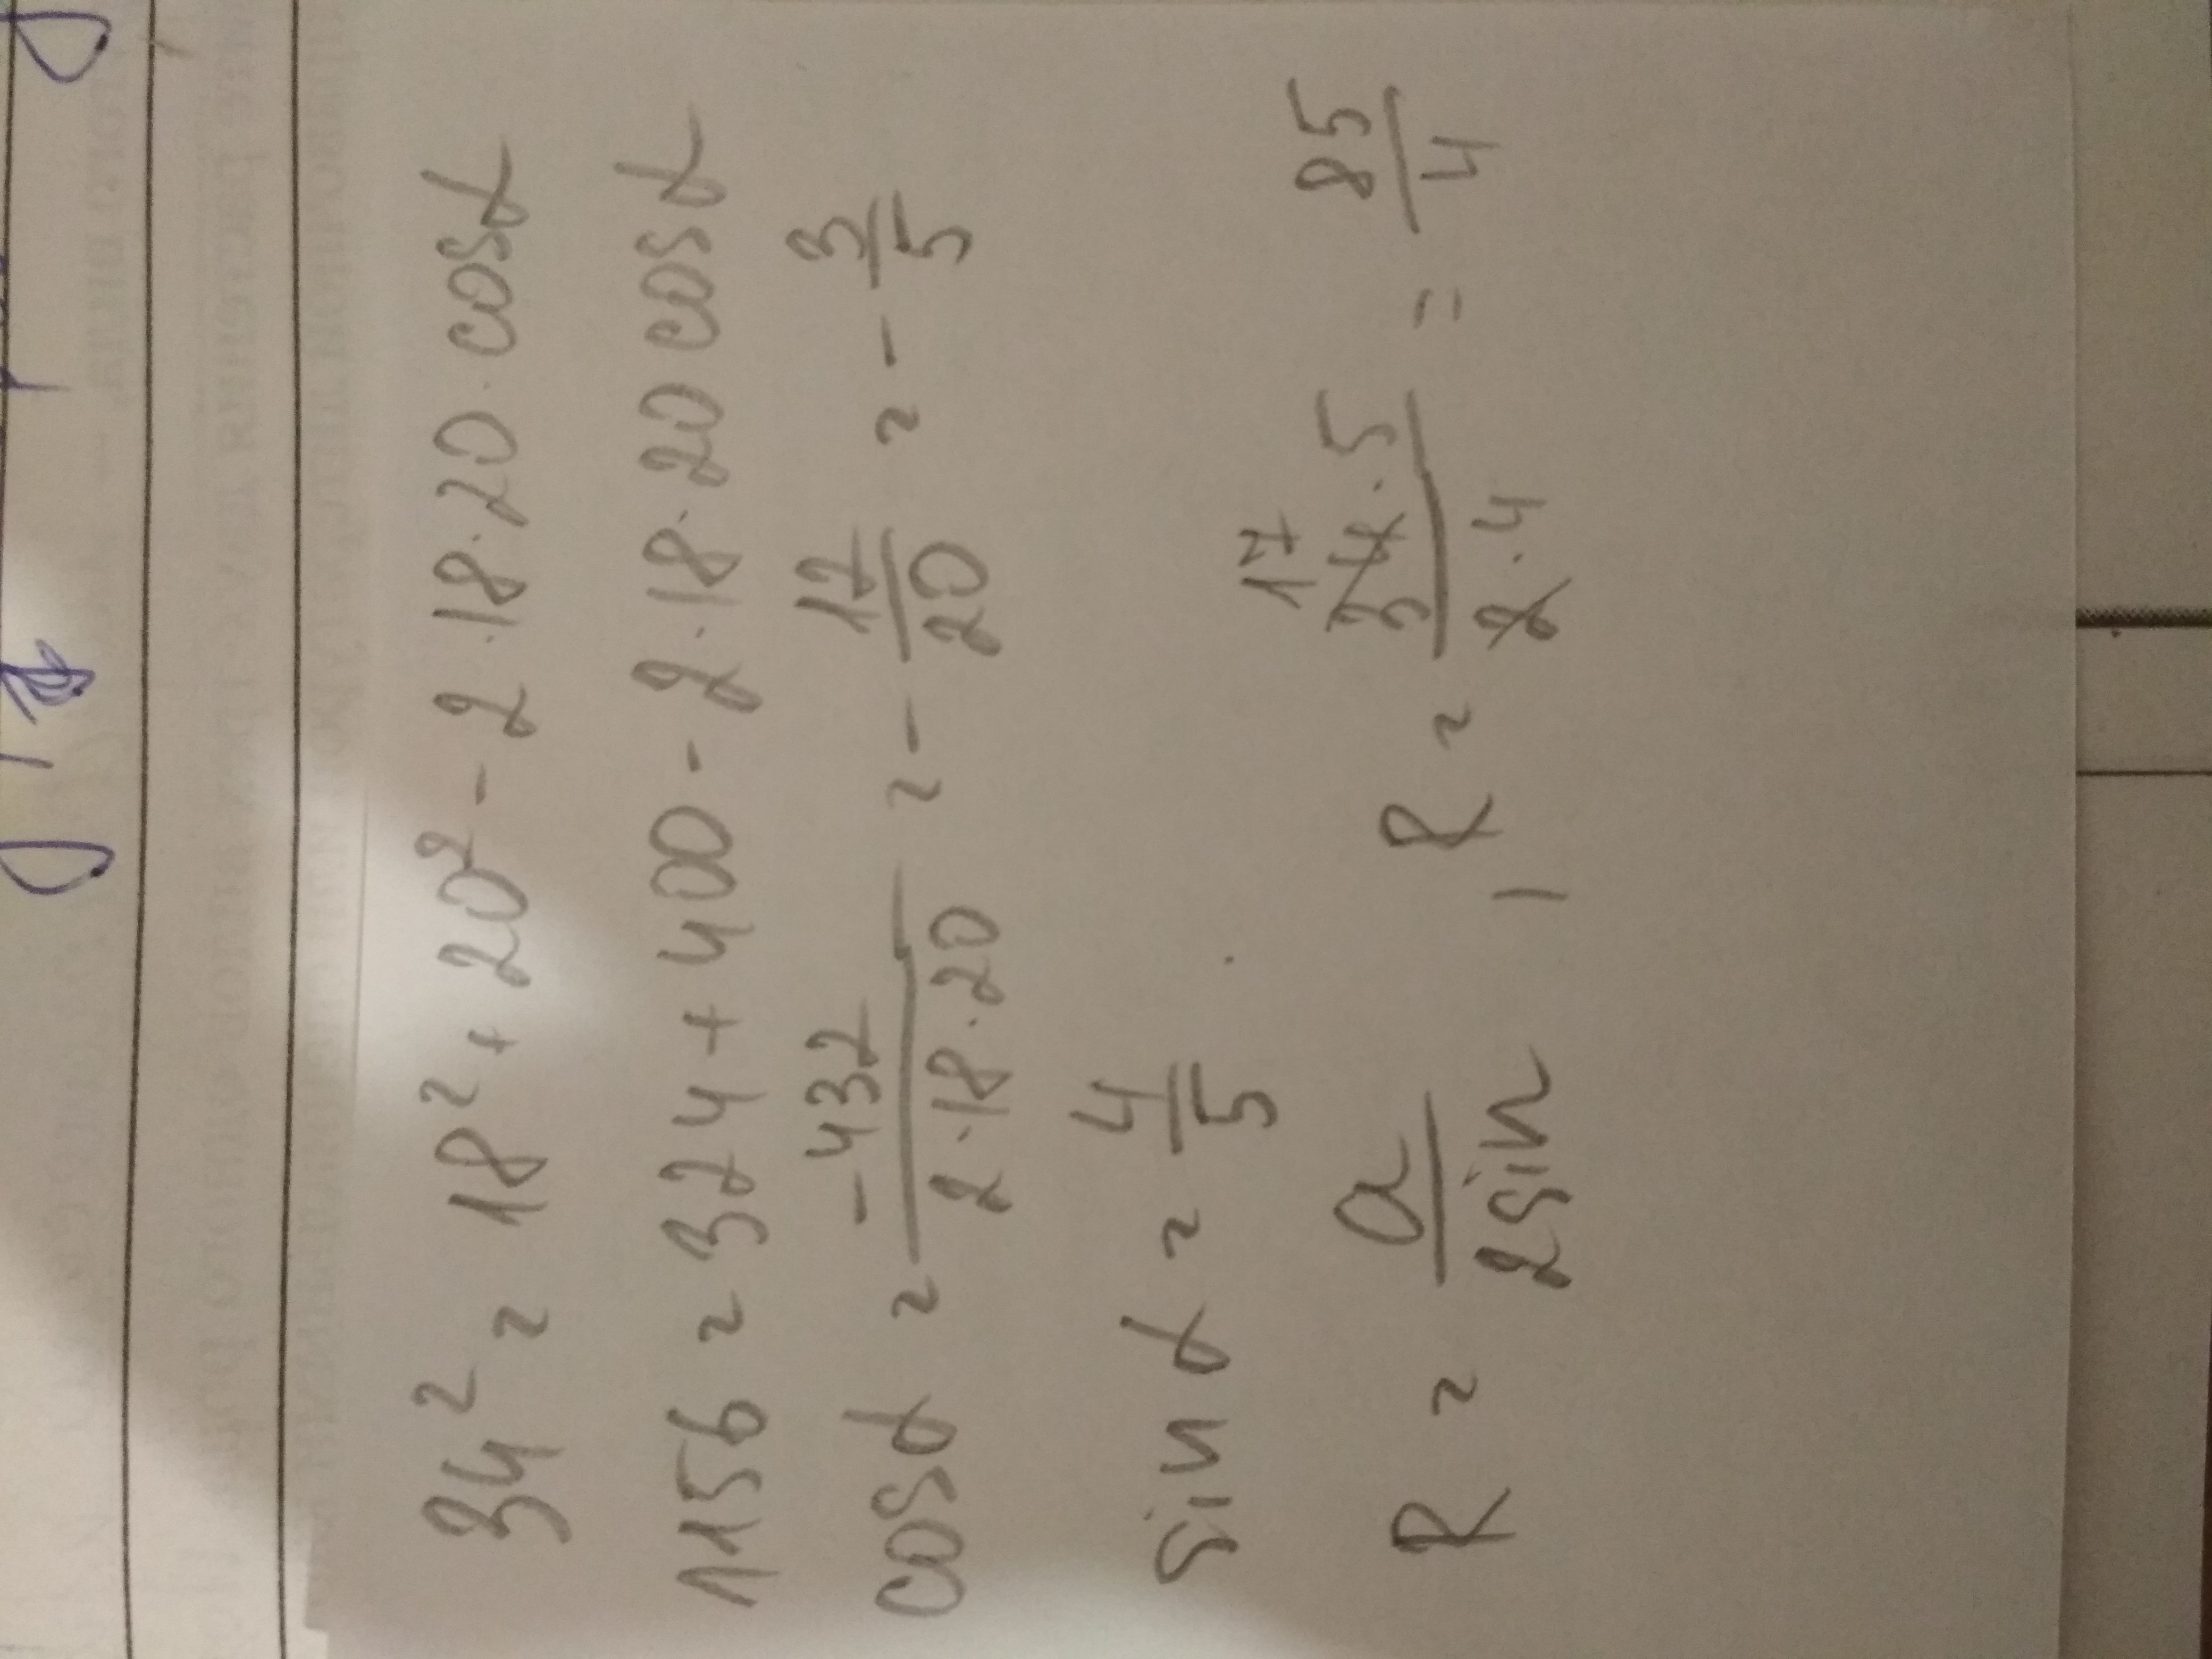 34² = 18² + 20² - 2·18·20·cosα
1156 = 324 + 400 - 2·18·20 cosα
cosα = -432/2·18·20 = -12/20 = -3/5
sin α = 4/5
R = a/2sin , R = 17 34·5/2·4 = 85/4